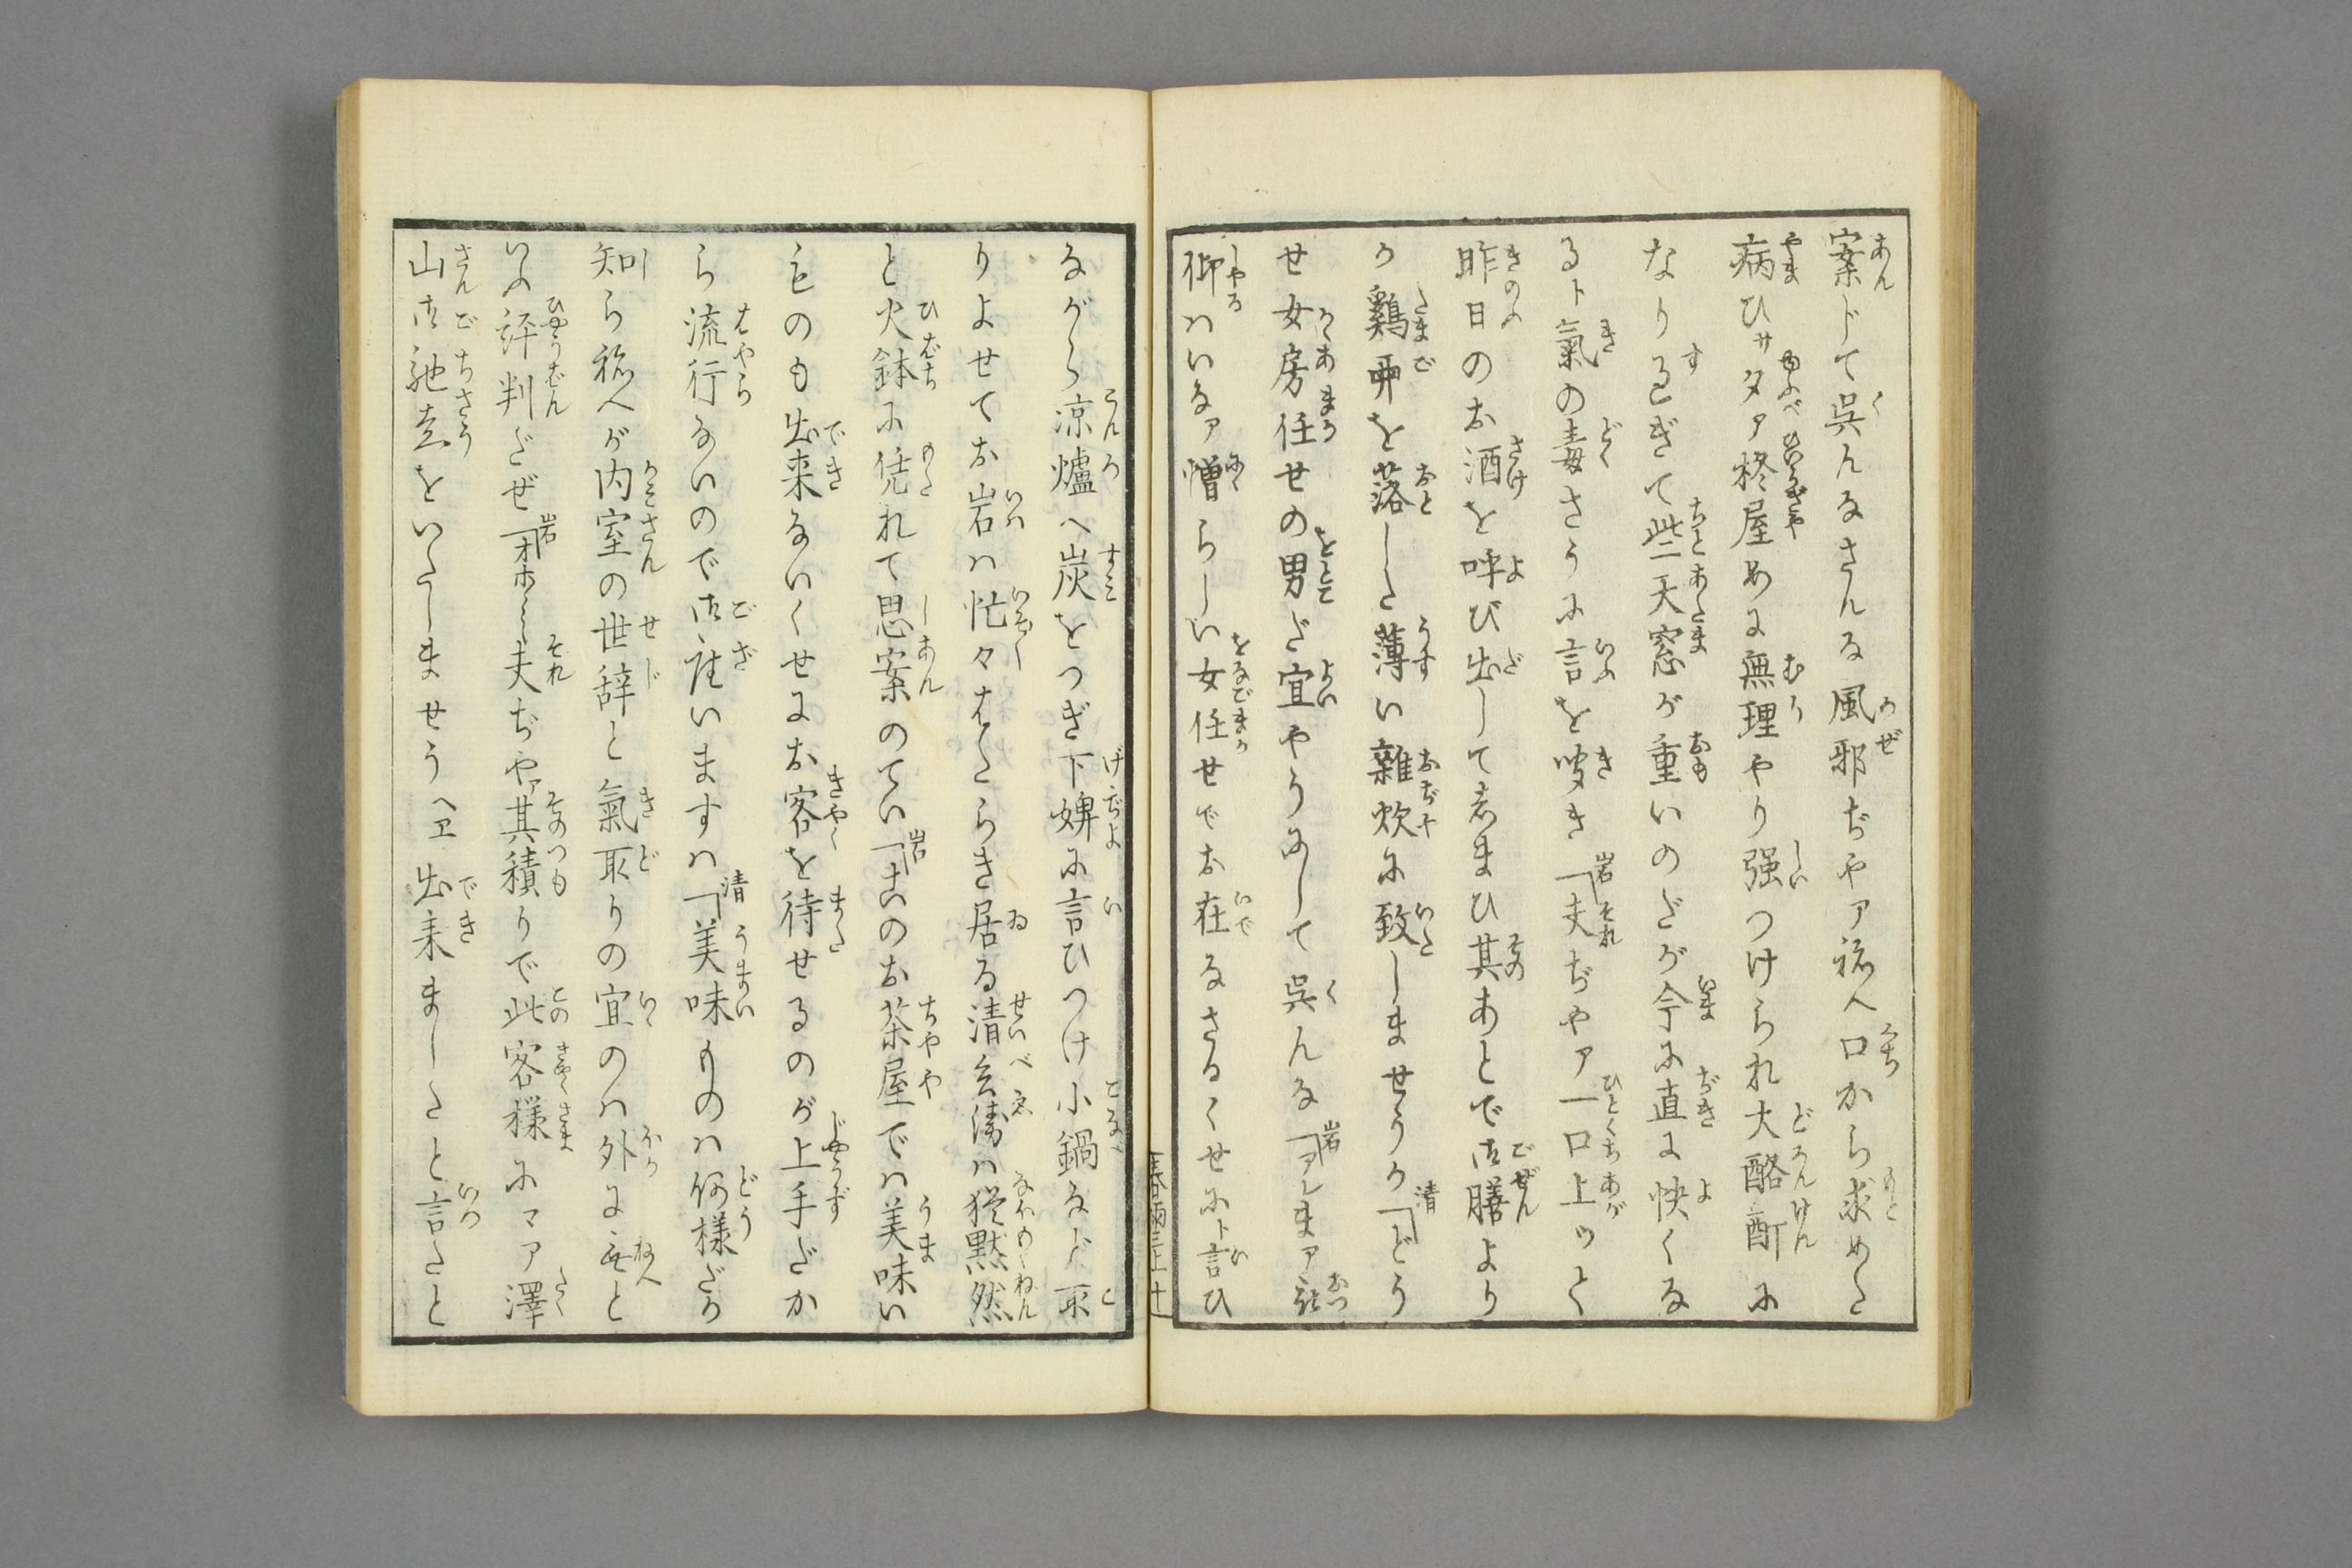 案じて呉んなさんな風邪ぢやア祢へ口から求めた
病ひサ夕ア柊屋めに無理やり强つけられ大酩酊に
なりすぎて些天窓が重いのだが今に直に快くな
るト氣の毒さうに言を吱き「岩夫ぢやア一口上ッて
昨日のお酒を呼び出してしまひ其あとで御膳より
か鷄卵を落した薄い雜炊に致しませうか「清どう
せ女房任せの男だ宜やうにして呉んな「岩アレまア
仰ハいなア憎らしい女任せでお在なさるくせにト言ひ
ながら凉爐へ炭をつぎ下婢に言ひつけ小鍋など取
りよせてお岩ハ忙々はたらき居る清兵衛ハ猶黙然
と火鉢に凭れて思案のてい「岩このお茶屋でハ美味い
ものも出来ないくせにお客を待せるのが上手だか
ら流行ないので御座いますハ「清美味ものハ何様だか
知ら祢へが内室の世辞と氣取りの宜のハ外に无と
いふ評判だぜ「岩ホホ夫ぢやア其積りで此客様にマア澤
山御馳走をいたしませうヘエ出来ましたと言たと